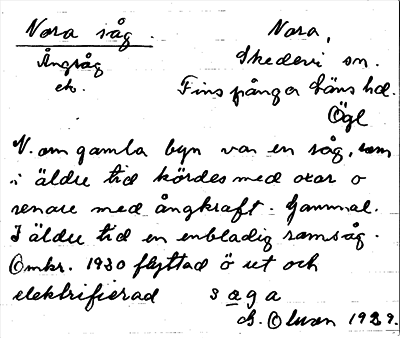 Nora såg. Nora,
Ångsåg Skedevi sn.
ek. Finspånga läns hd.
Ögl
N. om gamla byn var en såg, som
i äldre tid kördes med oxar o
senare med ångkraft. Gammal.
I äldre tid en enbladig ramsåg.
Omkr. 1930 flyttad ö ut och
elektrifierad saga
G. Olson 1939.